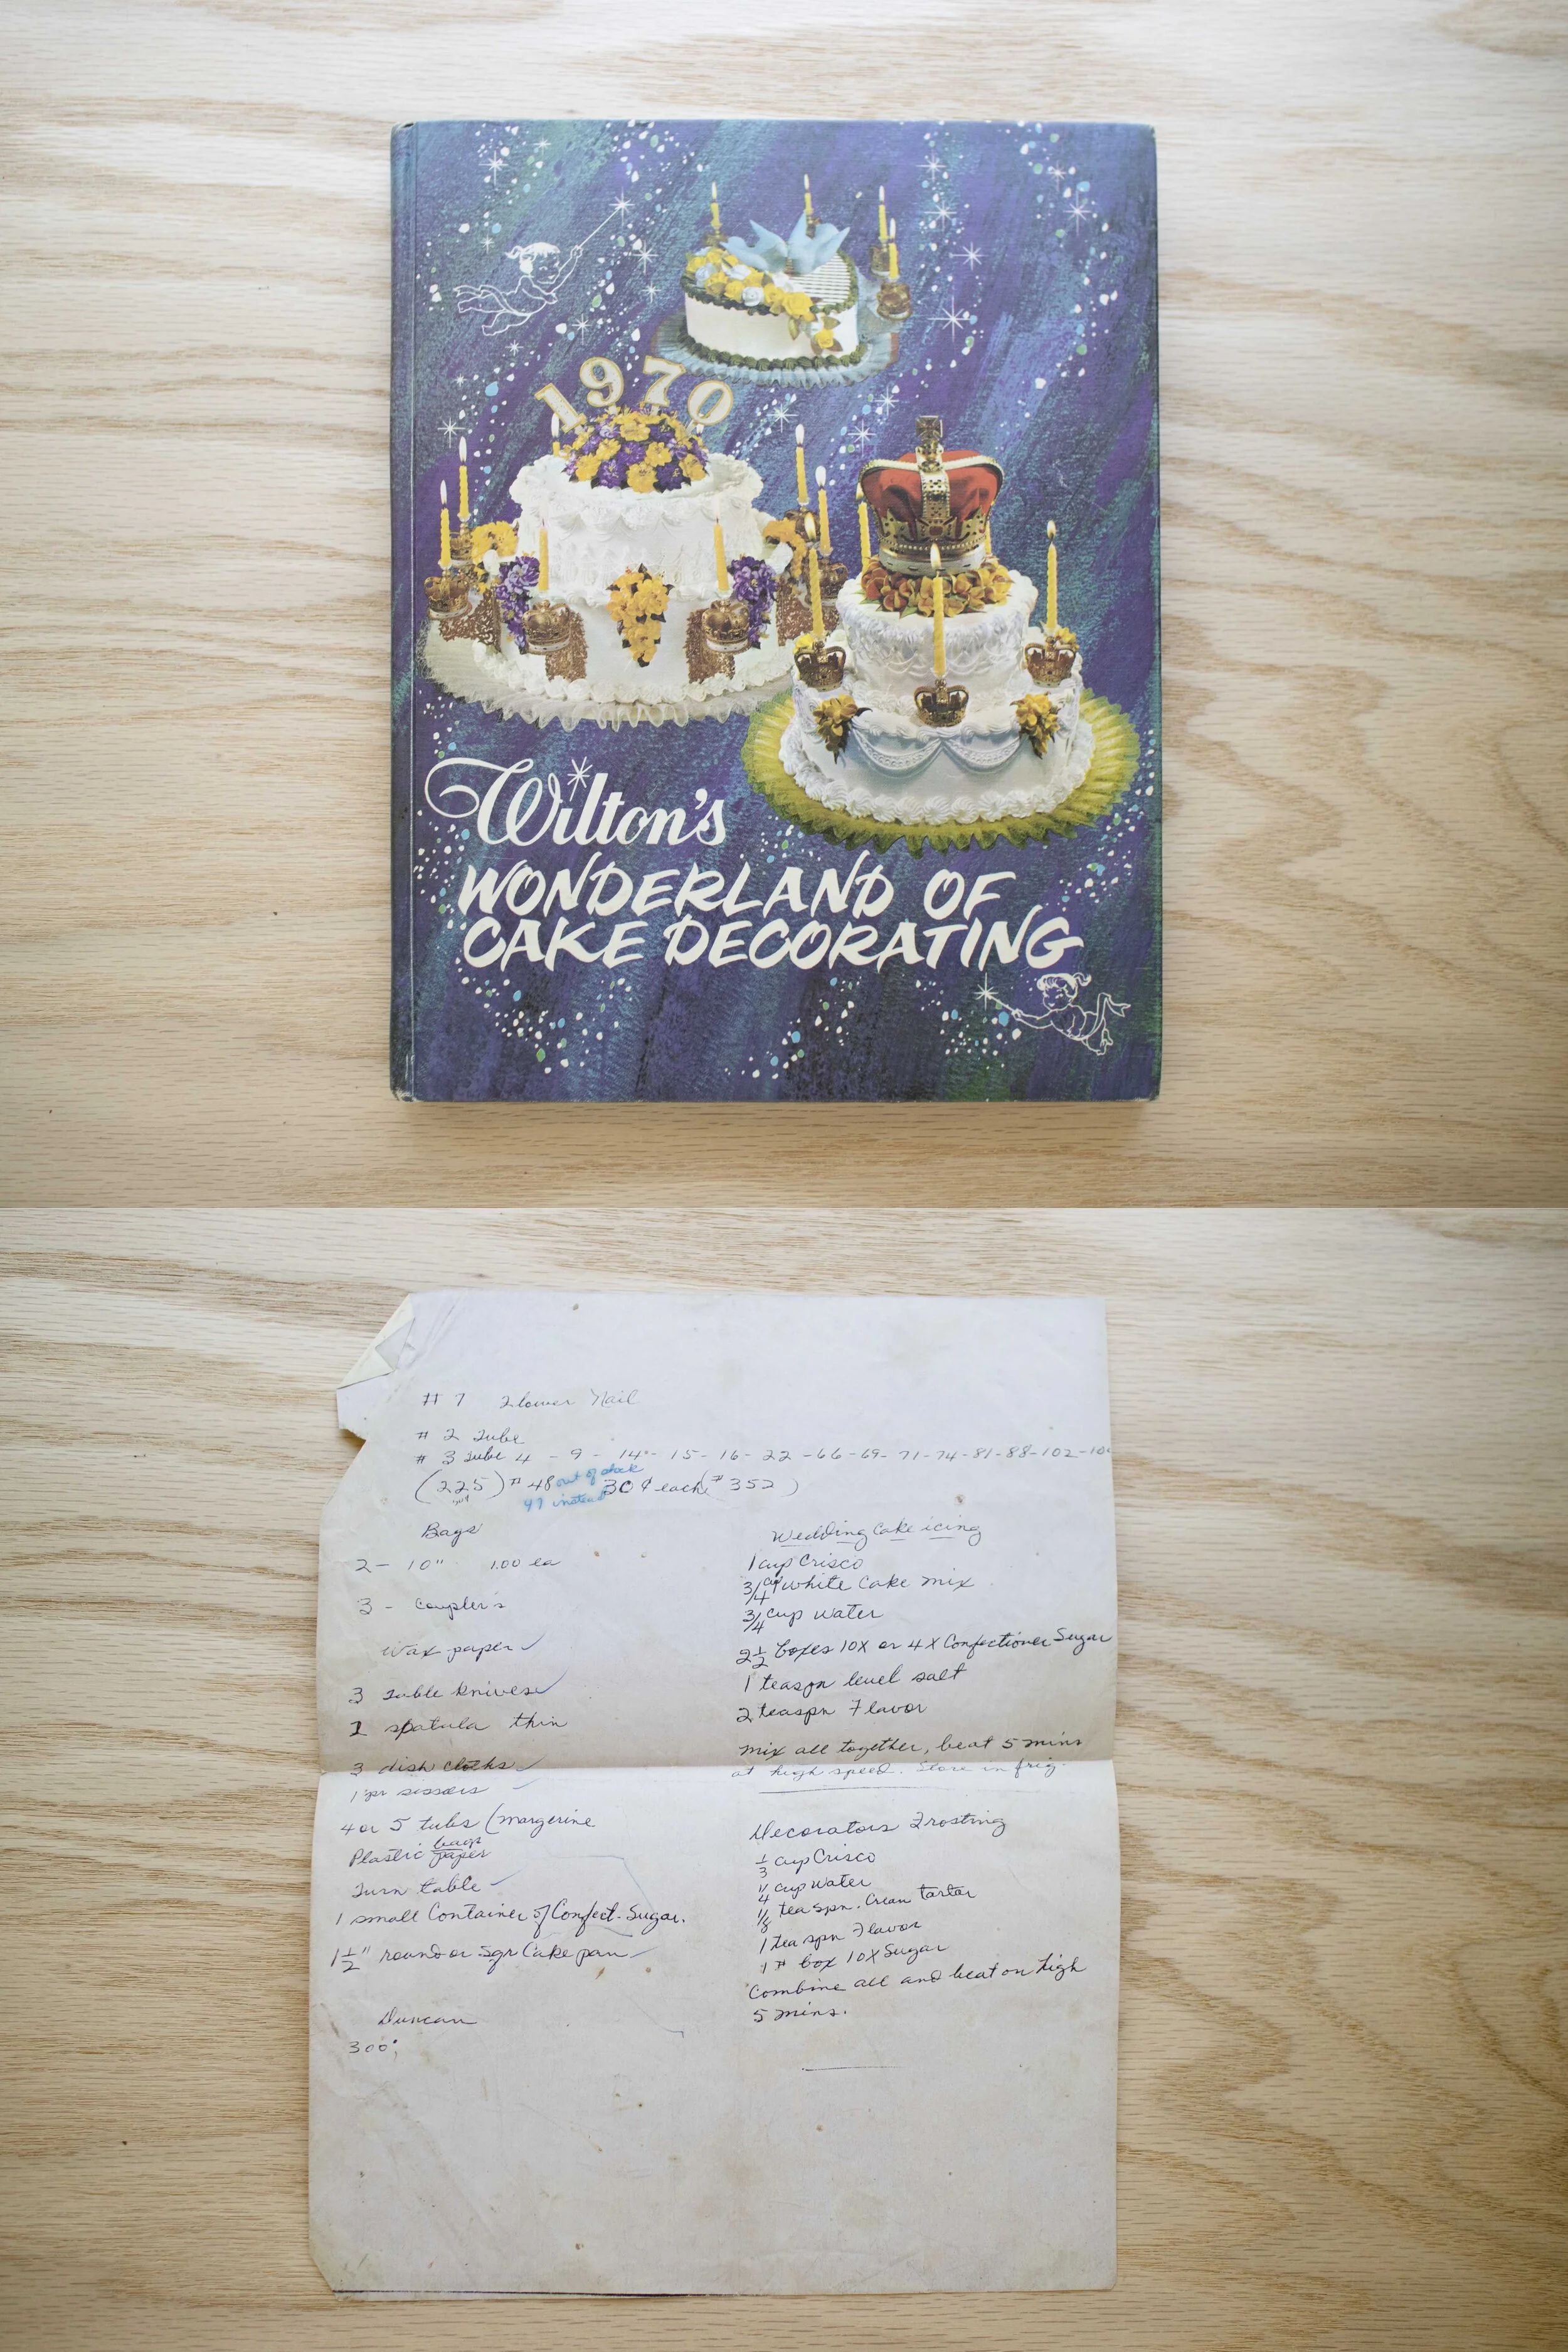 1970
Wilton's
WONDERLAND OF
CAKE DECORATING
# 7 Flower Nail
# 2 Tube
# 3 Tube 4 - 9 - 14 - 15 - 16 - 22 - 66 - 69 - 71 - 74 - 81 - 88 - 102 -
(225) # 48 out of stock 30¢ each (# 352)
47 instead
Bags
2 - 10" 1.00 ea
3 - Coupler's
Wax paper
3 Table knives
1 spatula thin
3 dish cloths
1 pr sissors
4 or 5 tubs (margerine
Plastic bags paper
Turn table
1 small Container of Confect. Sugar.
1 1/2" round or sqr Cake pan
Duncan
300;
Wedding Cake icing
1 cup Crisco
3/4 cup white Cake mix
3/4 cup water
2 1/2 boxes 10X or 4X Confectioner Sugar
1 teaspn level salt
2 teaspn Flavor
Mix all together, beat 5 mins
at high speed. Store in frig.
Decorators Frosting
1/3 cup Crisco
1/4 cup water
1/8 teaspn. Cream tartar
1 teaspn Flavor
1 # box 10X Sugar
Combine all and beat on high
5 mins.